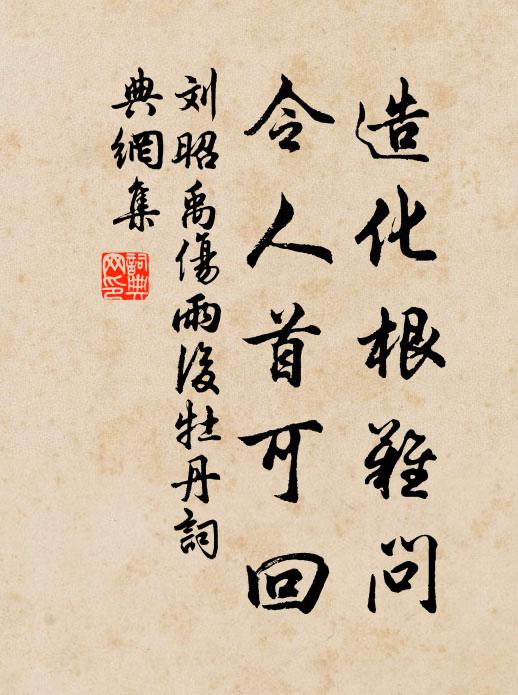 造化根難問
令人首可回
刘昭禹傷雨後牡丹詞
典網集
詞典网印